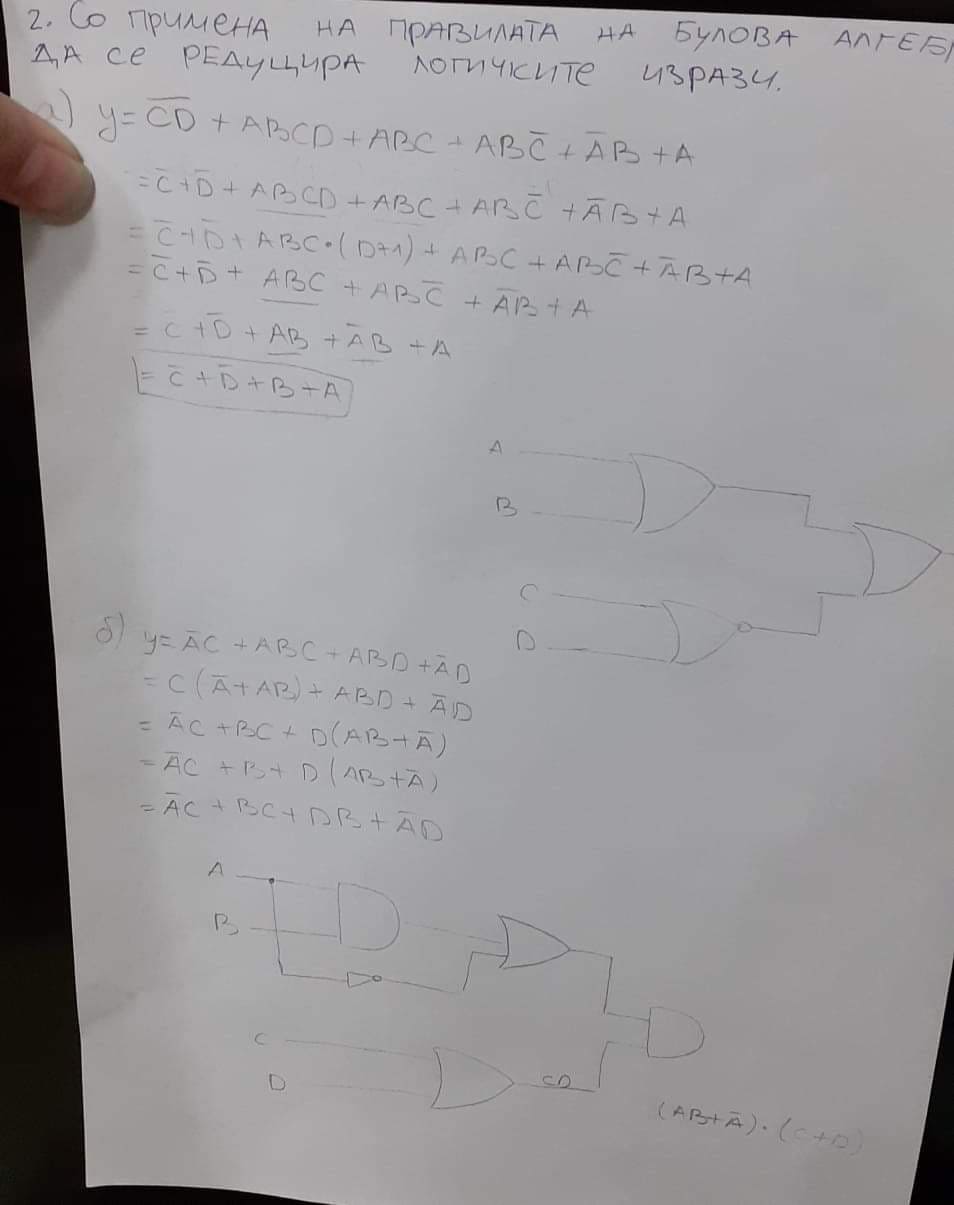 2. Со ПРИМЕНА НА ПРАВИЛАТА НА БУЛОВА АЛГЕБ
ДА СЕ РЕДУЦИРА ЛОГИЧКИТЕ ИЗРАЗИ.
а) y = C̅D̅ + ABCD + ABC + ABC̅ + A̅B + A
= C̅ + D̅ + ABCD + ABC + ABC̅ + A̅B + A
= C̅ + D̅ + ABC·(D+1) + ABC + ABC̅ + A̅B + A
= C̅ + D̅ + ABC + ABC̅ + A̅B + A
= C + D̅ + AB + A̅B + A
= C̅ + D̅ + B + A
A
B
C
D
б) y = A̅C + ABC + ABD + A̅D
= C(A̅ + AB) + ABD + A̅D
= A̅C + BC + D(AB + A̅)
= A̅C + B + D(AB + A̅)
= A̅C + BC + DB + A̅D
A
B
C
D
CD
(AB + A̅)·(C+D)